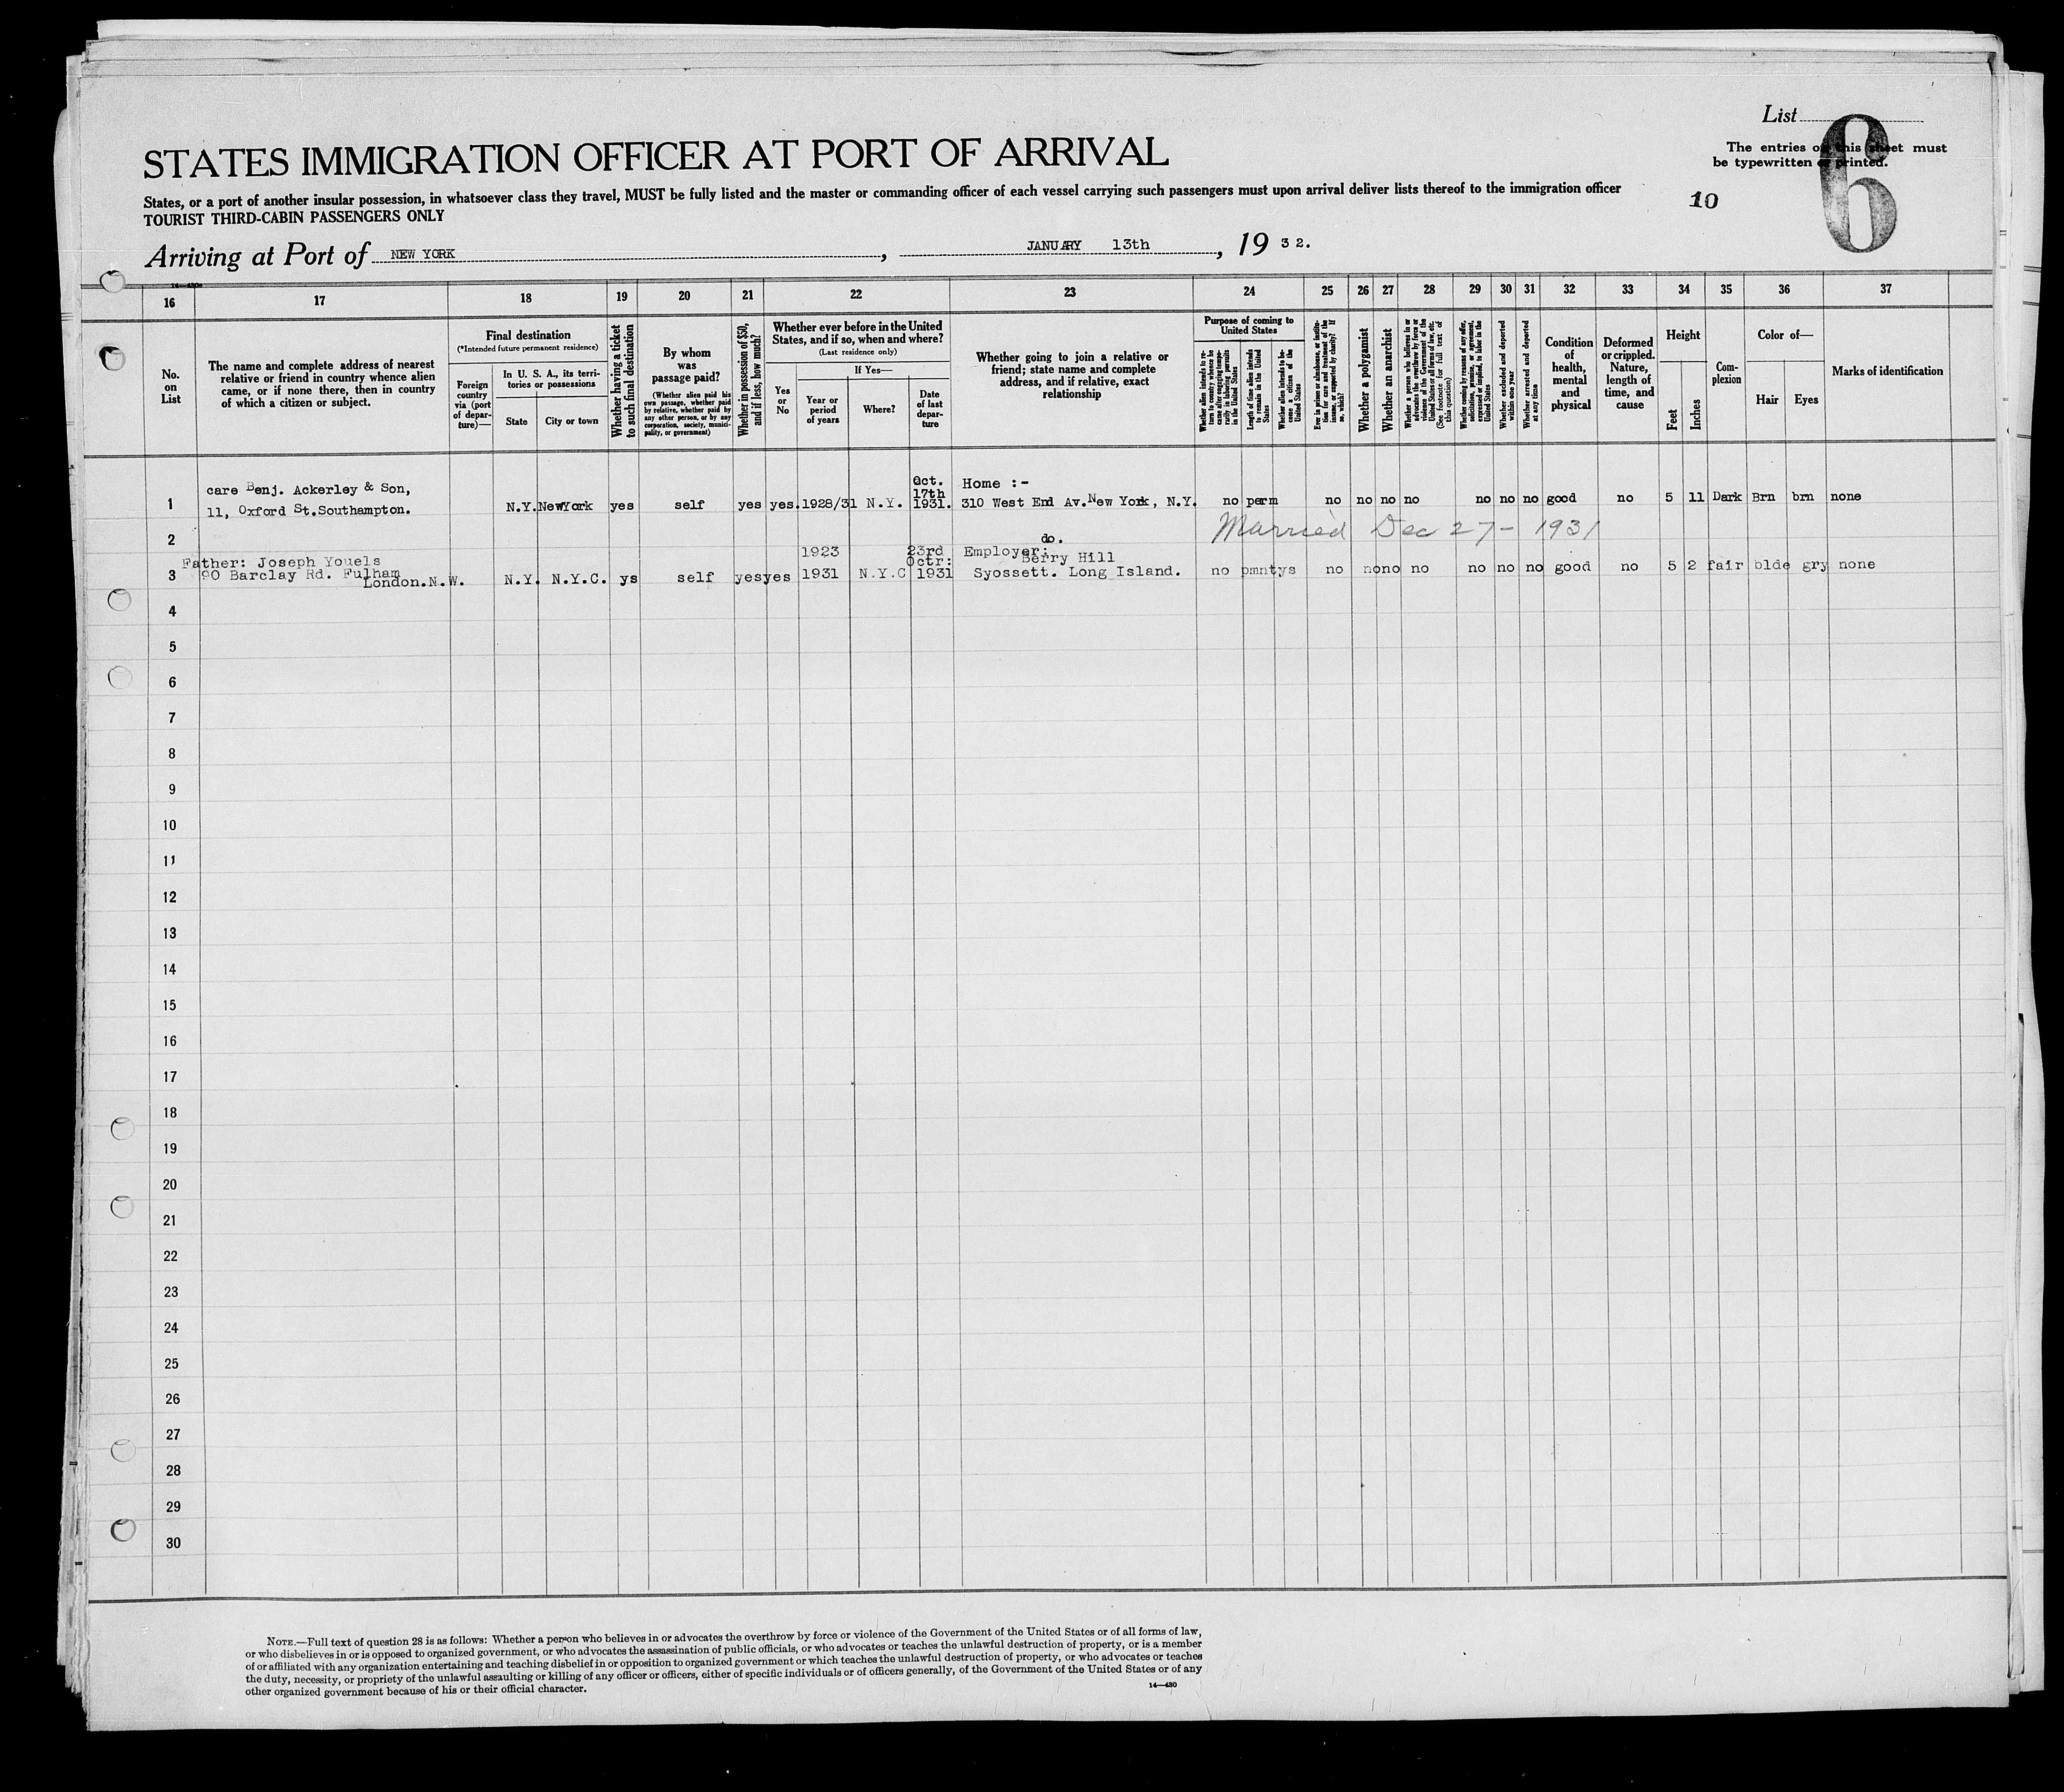 List
6
The entries on this sheet must
be typewritten or printed.
STATES IMMIGRATION OFFICER AT PORT OF ARRIVAL
States, or a port of another insular possession, in whatsoever class they travel, MUST be fully listed and the master or commanding officer of each vessel carrying such passengers must upon arrival deliver lists thereof to the immigration officer
TOURIST THIRD-CABIN PASSENGERS ONLY
10
Arriving at Port of NEW YORK, JANUARY 13th, 19 32.
16 17 18 19 20 21 22 23 24 25 26 27 28 29 30 31 32 33 34 35 36 37
No. on List
The name and complete address of nearest relative or friend in country whence alien came, or if none there, then in country of which a citizen or subject.
Final destination
(*Intended future permanent residence)
Foreign country via (port of departure)—
In U. S. A., its territories or possessions
State
City or town
Whether having a ticket to such final destination
By whom was passage paid?
(Whether alien paid his own passage, whether paid by relative, whether paid by any other person, or by any corporation, society, municipality, or government)
Whether in possession of $50, and if less, how much?
Whether ever before in the United States, and if so, when and where?
(Last residence only)
If Yes—
Yes or No
Year or period of years
Where?
Date of last departure
Whether going to join a relative or friend; state name and complete address, and if relative, exact relationship
Purpose of coming to United States
Whether alien intends to return to country whence he came after engaging temporarily in laboring pursuits in the United States
Length of time alien intends to remain in the United States
Whether alien intends to become a citizen of the United States
Whether a polygamist
Whether an anarchist
Whether excluded and deported within one year
Whether arrested and deported at any time
Condition of health, mental and physical
Deformed or crippled. Nature, length of time, and cause
Height
Feet
Inches
Complexion
Color of—
Hair
Eyes
Marks of identification
1 care Benj. Ackerley & Son,
11, Oxford St. Southampton. N.Y. NewYork yes self yes yes. 1928/31 N.Y. Oct. 17th 1931. Home :-
310 West End Av. New York, N.Y. no perm no no no no no no no good no 5 11 Dark Brn brn none
2 do. Married Dec 27 - 1931
3 Father: Joseph Youels
90 Barclay Rd. Fulham
London.N.W. N.Y. N.Y.C. ys self yes yes 1923
1931 N.Y.C 23rd Octr: 1931 Employer:
Berry Hill
Syossett. Long Island. no pmnt ys no no no no no no no good no 5 2 fair blde gry none
4
5
6
7
8
9
10
11
12
13
14
15
16
17
18
19
20
21
22
23
24
25
26
27
28
29
30
NOTE.—Full text of question 28 is as follows: Whether a person who believes in or advocates the overthrow by force or violence of the Government of the United States or of all forms of law,
or who disbelieves in or is opposed to organized government, or who advocates the assassination of public officials, or who advocates or teaches the unlawful destruction of property, or is a member
of or affiliated with any organization entertaining and teaching disbelief in or opposition to organized government or which teaches the unlawful destruction of property, or who advocates or teaches
the duty, necessity, or propriety of the unlawful assaulting or killing of any officer or officers, either of specific individuals or of officers generally, of the Government of the United States or of any
other organized government because of his or their official character.
14—430